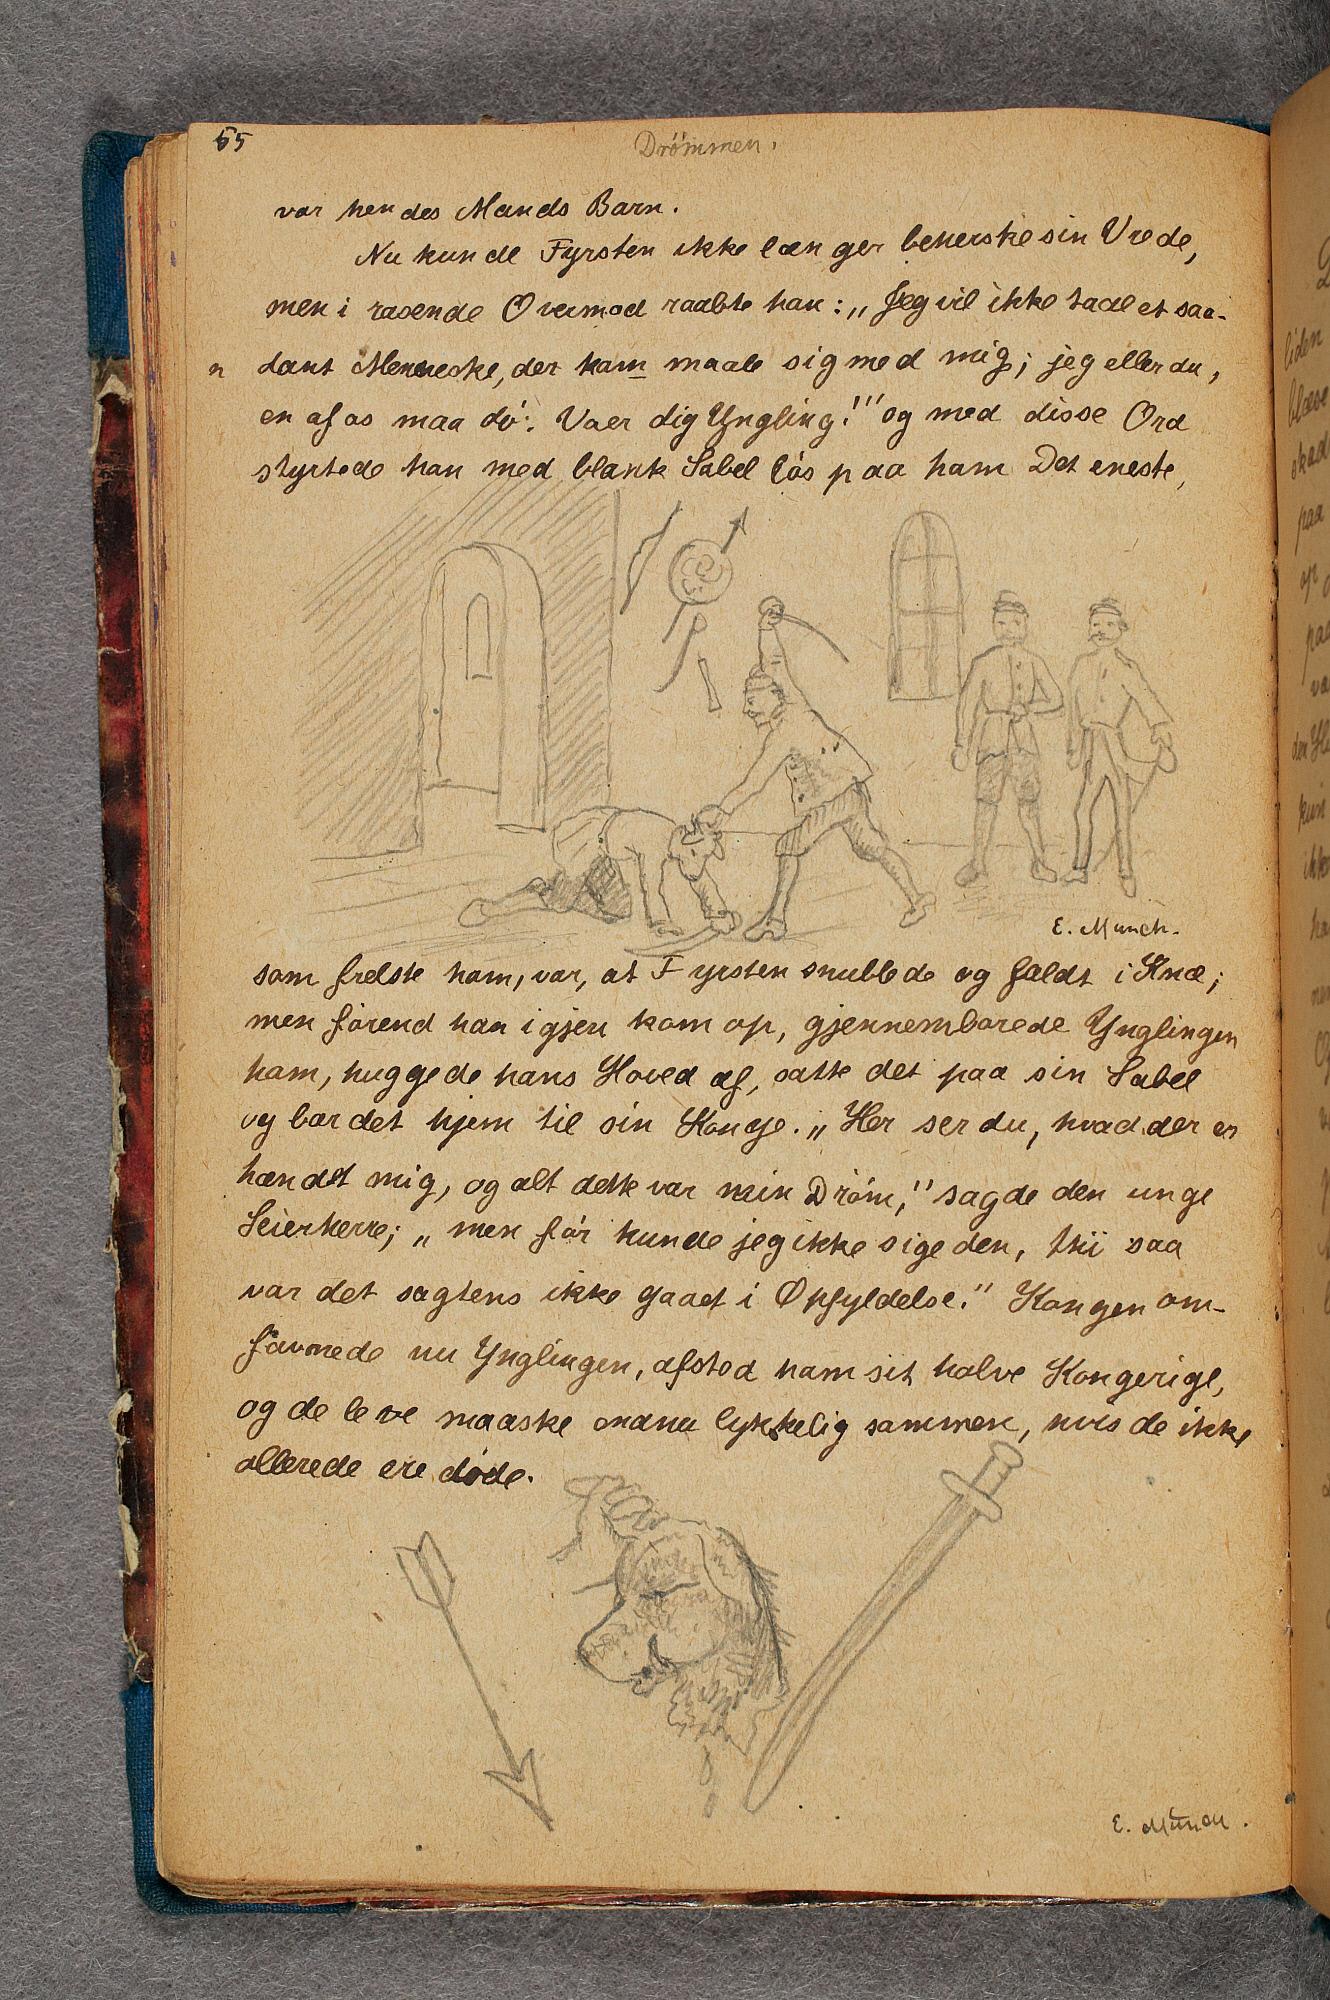 55
Drömmen.
var hendes Mands Barn.
Nu kunde Fyrsten ikke længer beherske sin Vrede,
men i rasende Overmod raabte han: „Jeg vil ikke taale et saa-
n dant Menneske, der kam maale sig med mig; jeg eller du,
en af os maa dö. Vær dig Yngling!" og med disse Ord
styrtede han med blank Sabel lös paa ham Det eneste,
E. Munch.
som frelste ham, var, at Fyrsten snublede og faldt i Knæ;
men förend han igjen kom op, gjennemborede Ynglingen
ham, huggede hans Hoved af, satte det paa sin Sabel
og bar det hjem til sin Konge. „Her ser du, hvad der er
hændt mig, og alt dette var min Dröm," sagde den unge
Seierherre; „men för kunde jeg ikke sige den, thi saa
var det sagtens ikke gaaet i Opfyldelse." Kongen om-
favnede nu Ynglingen, afstod ham sit halve Kongerige,
og de leve maaske endnu lykkelig sammen, hvis de ikke
allerede ere döde.
E. Munch.